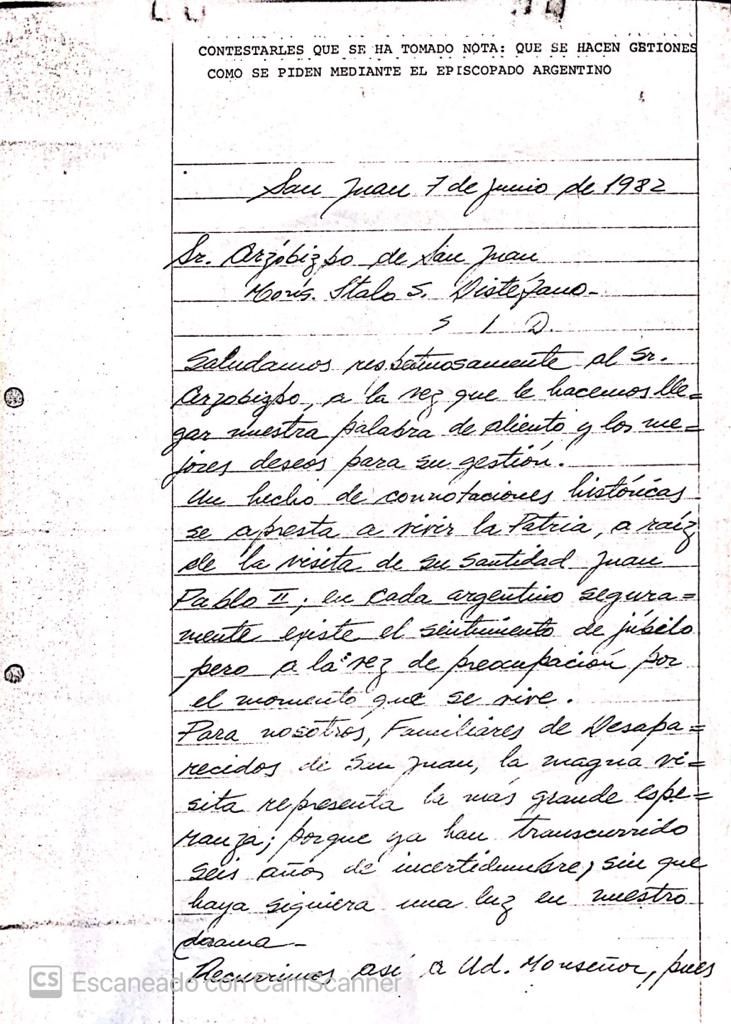 CONTESTARLES QUE SE HA TOMADO NOTA: QUE SE HACEN GETIONES
COMO SE PIDEN MEDIANTE EL EPISCOPADO ARGENTINO
San Juan 7 de junio de 1982
Sr. Arzóbizpo de San Juan
Mons. Italo S. Distéfano-
S I D.
Saludamos respetuosamente al Sr.
Arzobizpo, a la vez que le hacemos lle=
gar nuestra palabra de aliento y los me=
jores deseos para su gestión.
Un hecho de connotaciones históricas
se apresta a vivir la Patria, a raíz
de la visita de Su Santidad Juan
Pablo II; en cada argentino segura=
mente existe el sentimiento de júbilo
pero a la vez de preocupación por
el momento que se vive.
Para nosotros, Familiares de Desapa=
recidos de San Juan, la magna vi=
sita representa la más grande espe=
ranza; porque ya han transcurrido
seis años de incertidumbre, sin que
haya siquiera una luz en nuestro
drama-
Recurrimos así a Ud. Monseñor, pues
CS Escaneado con CamScanner